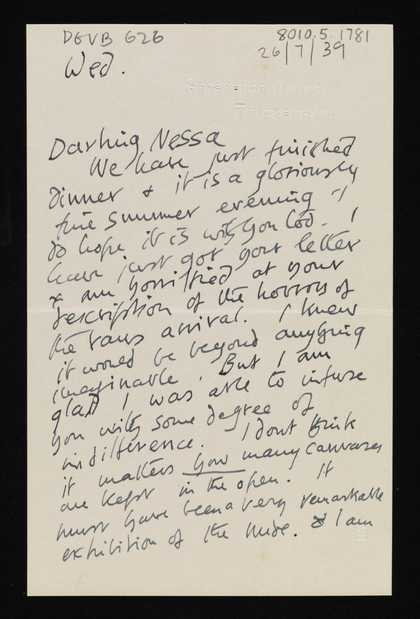 DGVB 626
8010.5.1781
26/7/39
Wed.
Darling Nessa
We have just finished
dinner & it is a gloriously
fine summer evening - I
do hope it is with you too. I
have just got your letter
& am horrified at your
description of the horrors of
the vans arrival. I knew
it would be beyond anything
imaginable. But I am
glad I was able to infuse
you with some degree of
indifference. I dont think
it matters how many canvases
are kept in the open. It
must have been a very remarkable
exhibition of the nude. & I am